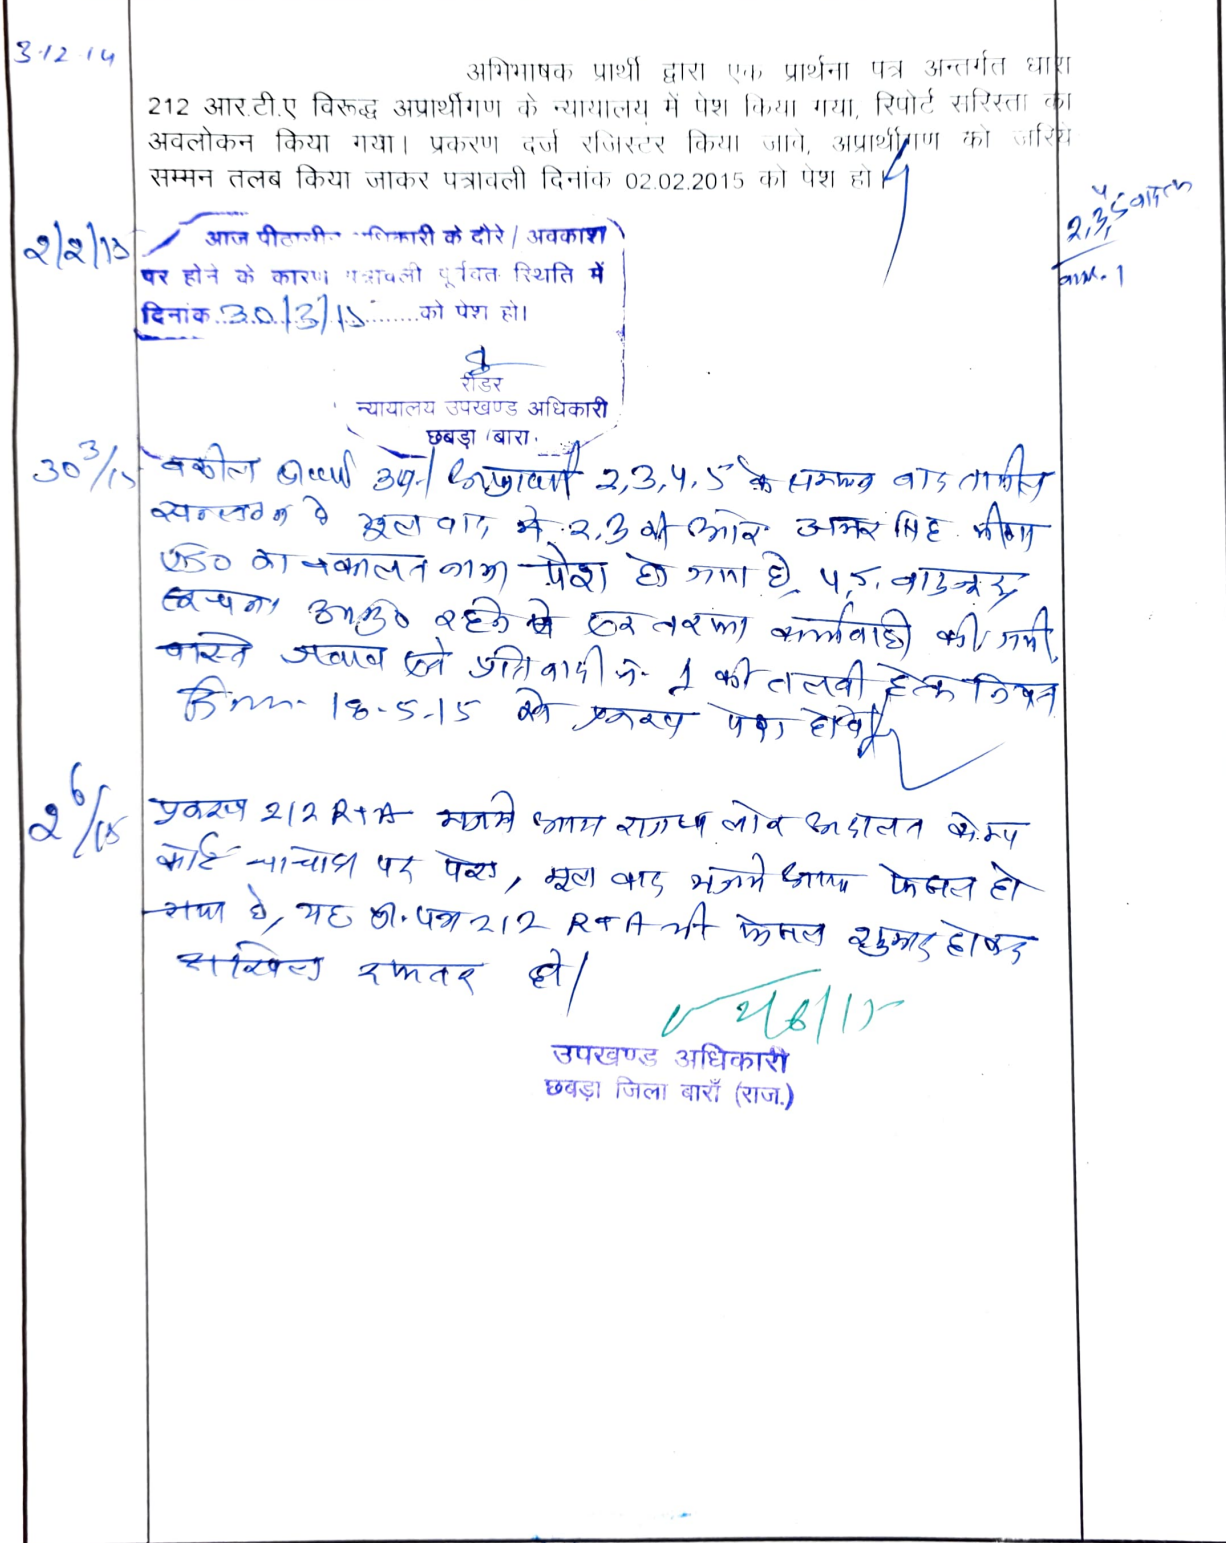 3.12.14
अभिभाषक प्रार्थी द्वारा एक प्रार्थना पत्र अन्तर्गत धारा
212 आर.टी.ए विरूद्ध अप्रार्थीगण के न्यायालय में पेश किया गया, रिपोर्ट सरिस्ता का
अवलोकन किया गया। प्रकरण दर्ज रजिस्टर किया जावे, अप्रार्थीगण को जरिये
सम्मन तलब किया जाकर पत्रावली दिनांक 02.02.2015 को पेश हो।
2,3,4,5
1
2/2/15
आज पीठासीन अधिकारी के दौरे / अवकाश
पर होने के कारण पत्रावली पूर्ववत स्थिति में
दिनांक 30/3/15 को पेश हो।
रीडर
न्यायालय उपखण्ड अधिकारी
छबड़ा बारा.
30 3/15
वकील प्रार्थी उप./ अप्रार्थी 2,3,4,5 के सम्मन बाद तामील
मूल वाद में 2,3 की ओर अमर सिंह मीणा
का वकालत नामा पेश हो गया है, 4,5 बावजूद
सूचना अनु० रहने से एक तरफा कार्यवाही की गयी,
वास्ते जवाब एवं प्रतिवादी नं. 1 की तलबी हेतु नियत
दिनांक 18-5-15 को प्रकरण पेश होवे।
2 6/15
प्रकरण 212 RTA राजस्व लोक अदालत केम्प
पर पेश, मूल वाद फैसल हो
गया है, यह प्रा. पत्र 212 RTA भी फैसल शुमार होकर
दाखिल दफ्तर हो।
2/6/15
उपखण्ड अधिकारी
छबड़ा जिला बाराँ (राज.)